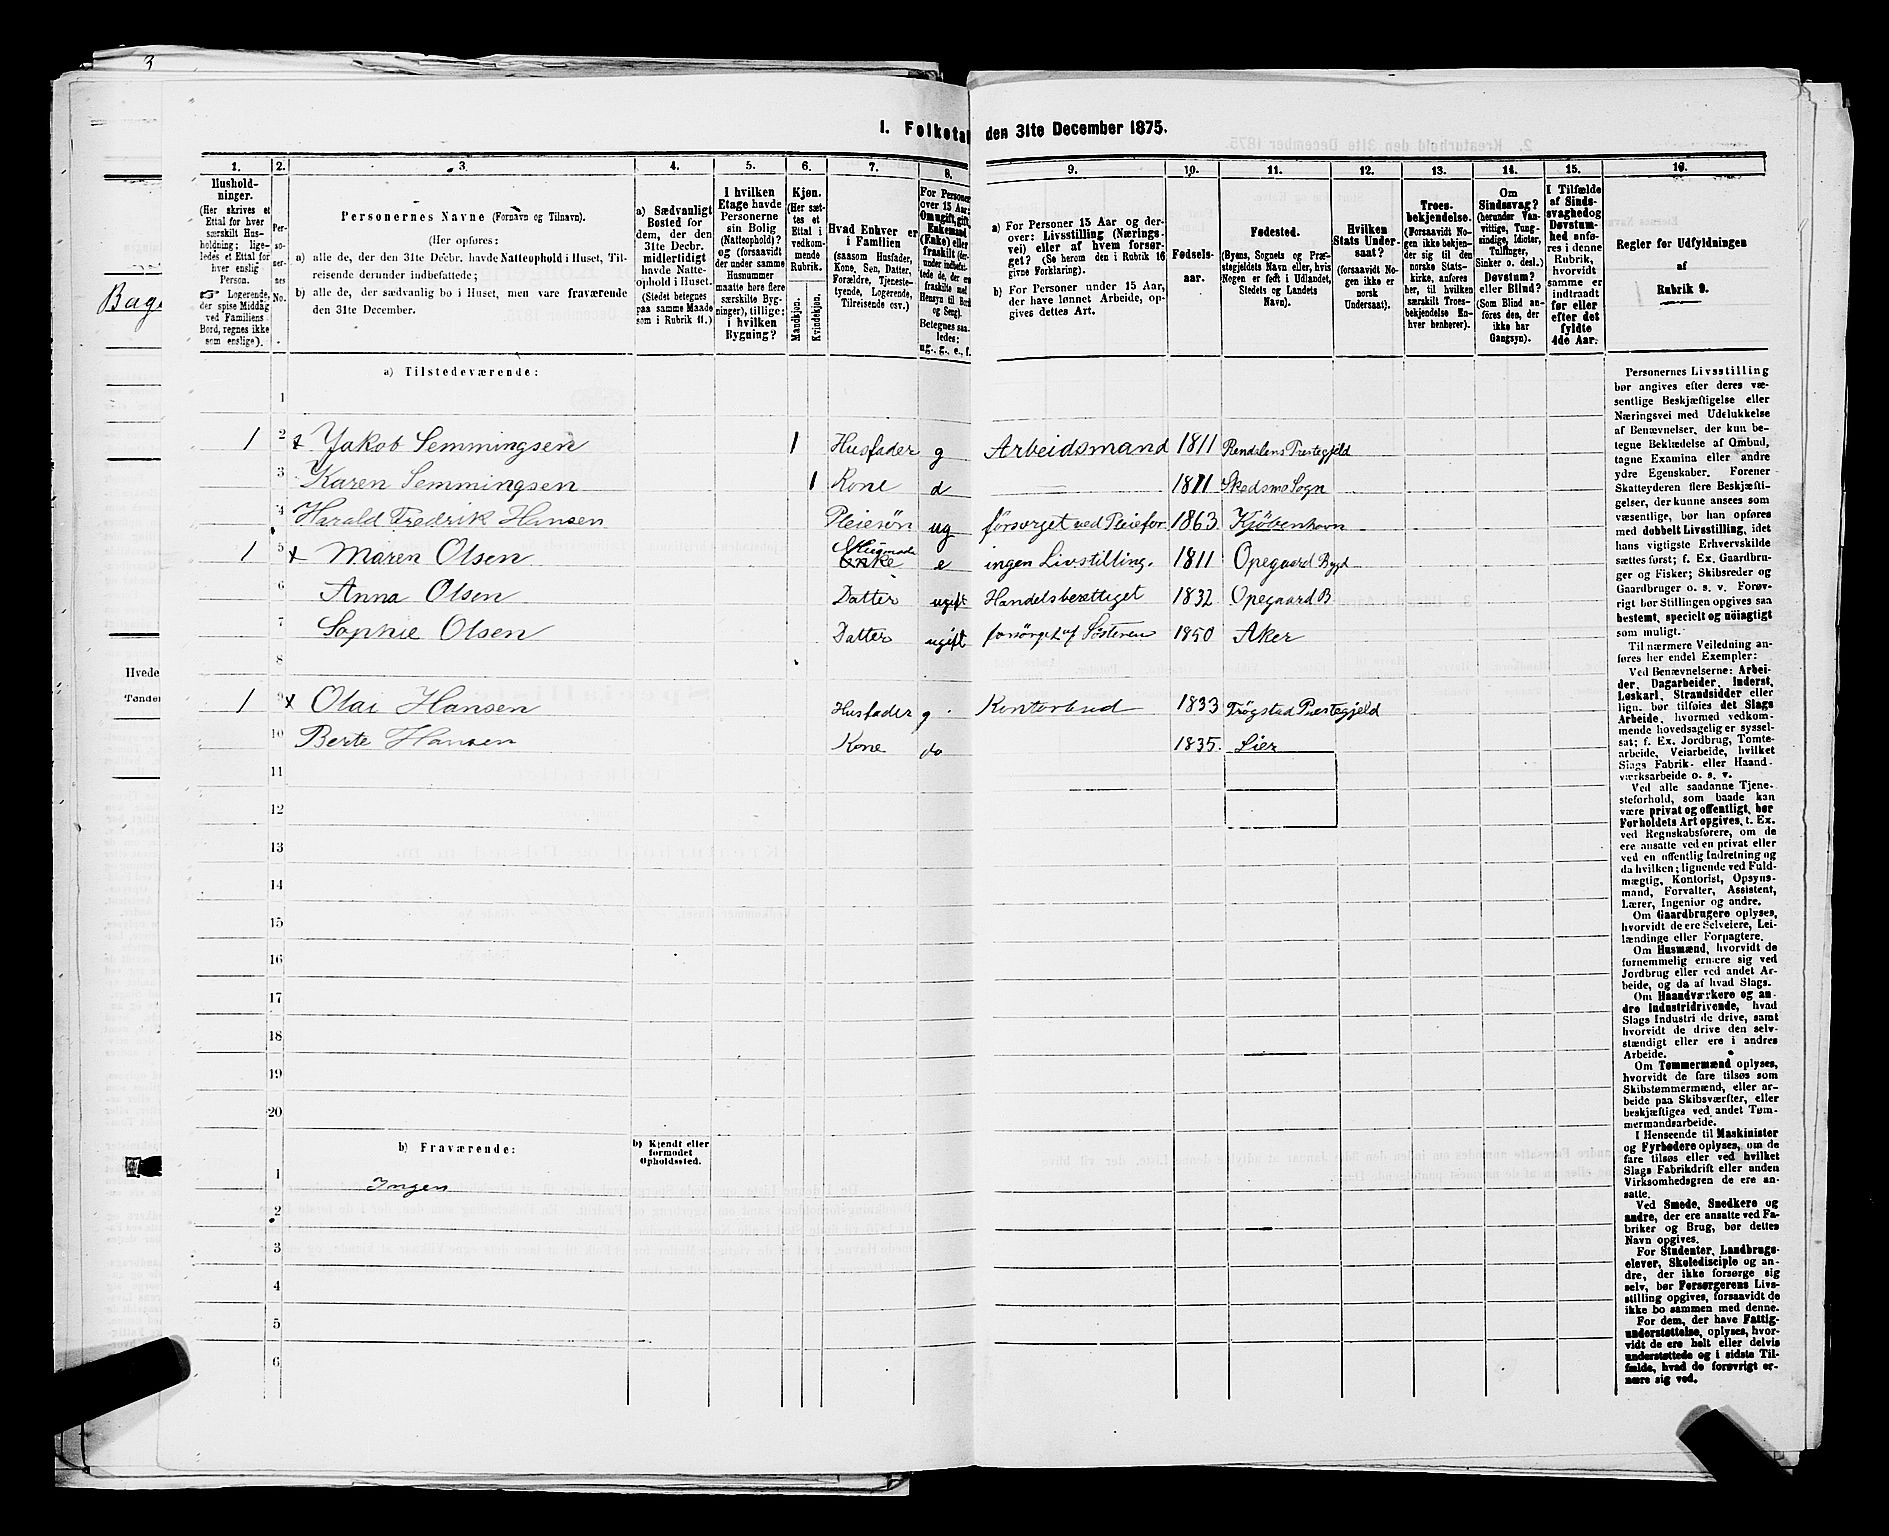 3
I. Folketal den 31te December 1875.
1. 2. 3. 4. 5. 6. 7. 8. 9. 10. 11. 12. 13. 14. 15. 16.
Husholdninger.
(Her skrives et
Ettal for hver
særskilt Husholdning;
ligeledes et Ettal for
hver enslig
Person.
☞ Logerende,
der spise Middag
ved Familiens
Bord, regnes ikke
som enslige).
Personernes No.
Personernes Navne (Fornavn og Tilnavn).
(Her opføres:
a) alle de, der den 31te Decbr. havde Natteophold i Huset, Tilreisende derunder indbefattede;
b) alle de, der sædvanlig bo i Huset, men vare fraværende
den 31te December.
a) Sædvanligt
Bosted for
dem, der den
31te Decbr.
midlertidigt
havde Natteophold i Huset.
(Stedet betegnes
paa samme Maade
som i Rubrik 11.)
I hvilken
Etage havde
Personerne
sin Bolig
(Natteophold)?
og (forsaavidt
der under samme
Husnummer
maatte høre flere
særskilte Bygninger), tillige:
i hvilken
Bygning?
Kjøn.
(Her sættes et
Ettal i
vedkommende
Rubrik.
Mandkjøn.
Kvindekjøn.)
Hvad Enhver er
i Familien
(saasom Husfader,
Kone, Søn, Datter,
Forældre, Tjenestetyende, Logerende,
Tilreisende osv.)
For Personer
over 15 Aar:
Om ugift, gift,
Enkemand
(Enke) eller
fraskilt
Betegnes saaledes:
ug., g., e., f.
a) For Personer 15 Aar og derover: Livsstilling (Næringsvei) eller af hvem forsørget? (Se herom den i Rubrik 16
givne Forklaring).
b) For Personer under 15 Aar,
der have lønnet Arbeide, opgives dettes Art.
Fødselsaar.
Fødested.
(Byens, Sognets og Præstegjeldets Navn eller, hvis
Nogen er født i Udlandet,
Stedets og Landets
Navn).
Hvilken
Stats Undersaat?
(forsaavidt Nogen ikke er
norsk
Undersaat).
Troesbekjendelse.
(Forsaavidt Nogen ikke bekjender sig til den
norske Statskirke, anføres
her, til hvilken
særskilt Troesbekjendelse Enhver henhører).
Om
Sindssvag?
(herunder Vanvittige, Tungsindige, Idioter,
Tullinger,
Sinker o. desl.)
Døvstum?
eller Blind?
(Som Blind anføres den, der
ikke har
Gangsyn).
I Tilfælde
af Sindssvaghed og
Døvstumhed anføres i denne
Rubrik,
hvorvidt
samme er
indtraadt
før eller
efter det
fyldte
4de Aar.
Regler for Udfyldningen
af
Rubrik 9.
a) Tilstedeværende:
1
1 2 x Jakob Semmingsen 1 Husfader g Arbeidsmand 1811 Rendalens Prestegjeld
3 Karen Semmingsen 1 Kone d 1811 Skedsmo Sogn
4 Harald Fredrik Hansen Pleiesøn ug forsørget ved Pleiefor. 1863 Kjøbenhavn
1 5 x Maren Olsen e ingen Livsstilling. 1811 Opegaard Bygd
6 Anna Olsen Datter ugift Handelsberettiget 1832 Opegaard B
7 Sophie Olsen Datter ugift forsörget af Søsteren 1850 Aker
8
1 9 x Olai Hansen Husfader g. Kontorbud 1833 Trøgstad Prestegjeld
10 Berte Hansen Kone do 1835. Lier
11
12
13
14
15
16
17
18
19
20
b) Fraværende:
b) Kjendt eller
formodet
Opholdssted.
1 Ingen
2
3
4
5
6
Personernes Livsstilling
bør angives efter deres væsentlige Beskjæftigelse eller
Næringsvei med Udelukkelse
af Benævnelser, der kun betegne Beklædelse af Ombud,
tagne Examina eller andre
ydre Egenskaber. Forener
Skatteyderen flere Beskjæftigelser, der kunne ansees som
væsentlige, bør han opføres
med dobbelt Livsstilling, idet
hans vigtigste Erhvervskilde
sættes først; f. Ex. Gaardbruger og Fisker; Skibsreder og
Gaardbruger o. s. v. Forøvrigt bør Stillingen opgives saa
bestemt, specielt og nöiagtigt
som muligt.
Til nærmere Veiledning anføres her endel Exempler:
Ved Benævnelserne: Arbeider, Dagarbeider, Inderst,
Løskarl, Strandsidder eller
lign. bør tilføies det Slags
Arbeide, hvormed vedkommende hovedsagelig er sysselsat; f. Ex. Jordbrug, Tomtearbeide, Veiarbeide, hvilket
Slags Fabrik- eller Haandværksarbeide o. s. v.
Ved alle saadanne Tjenesteforhold, som baade kan
være privat og offentligt, bør
Forholdets Art opgives, t. Ex.
ved Regnskabsførere, om de
ere ansatte ved en privat eller
ved en offentlig Indretning og
da hvilken; lignende ved Fuldmægtig, Kontorist, Opsynsmand, Forvalter, Assistent,
Lærer, Ingeniør og andre.
Om Gaardbrugere oplyses,
hvorvidt de ere Selveiere, Leilændinge eller Forpagtere.
Om Husmænd, hvorvidt de
fornemmelig ernære sig ved
Jordbrug eller ved andet Arbeide, og da af hvad Slags.
Om Haandværkere og andre Industridrivende, hvad
Slags Industri de drive, samt
hvorvidt de drive den selvstændigt eller ere i andres
Arbeide.
Om Tømmermænd oplyses,
hvorvidt de fare tilsøs som
Skibstømmermænd, eller arbeide paa Skibsværfter, eller
beskjæftiges ved andet Tømmermandsarbeide.
I Henseende til Maskinister
og Fyrbødere oplyses, om de
fare tilsøs eller ved hvilket
Slags Fabrikdrift eller anden
Virksomhedsgren de ere ansatte.
Ved Smede, Snedkere og
andre, der ere ansatte ved Fabriker og Brug, bør dettes
Navn opgives.
For Studenter, Landbrugselever, Skoledisciple og andre, der ikke forsørge sig
selv, bør Forsørgerens Livsstilling opgives, forsaavidt de
ikke bo sammen med denne.
For dem, der have Fattigunderstøttelse, oplyses, hvorvidt de ere helt eller delvis
understøttede og i sidste Tilfælde, hvad de forøvrigt ernære sig ved.
Hvede
Tønder